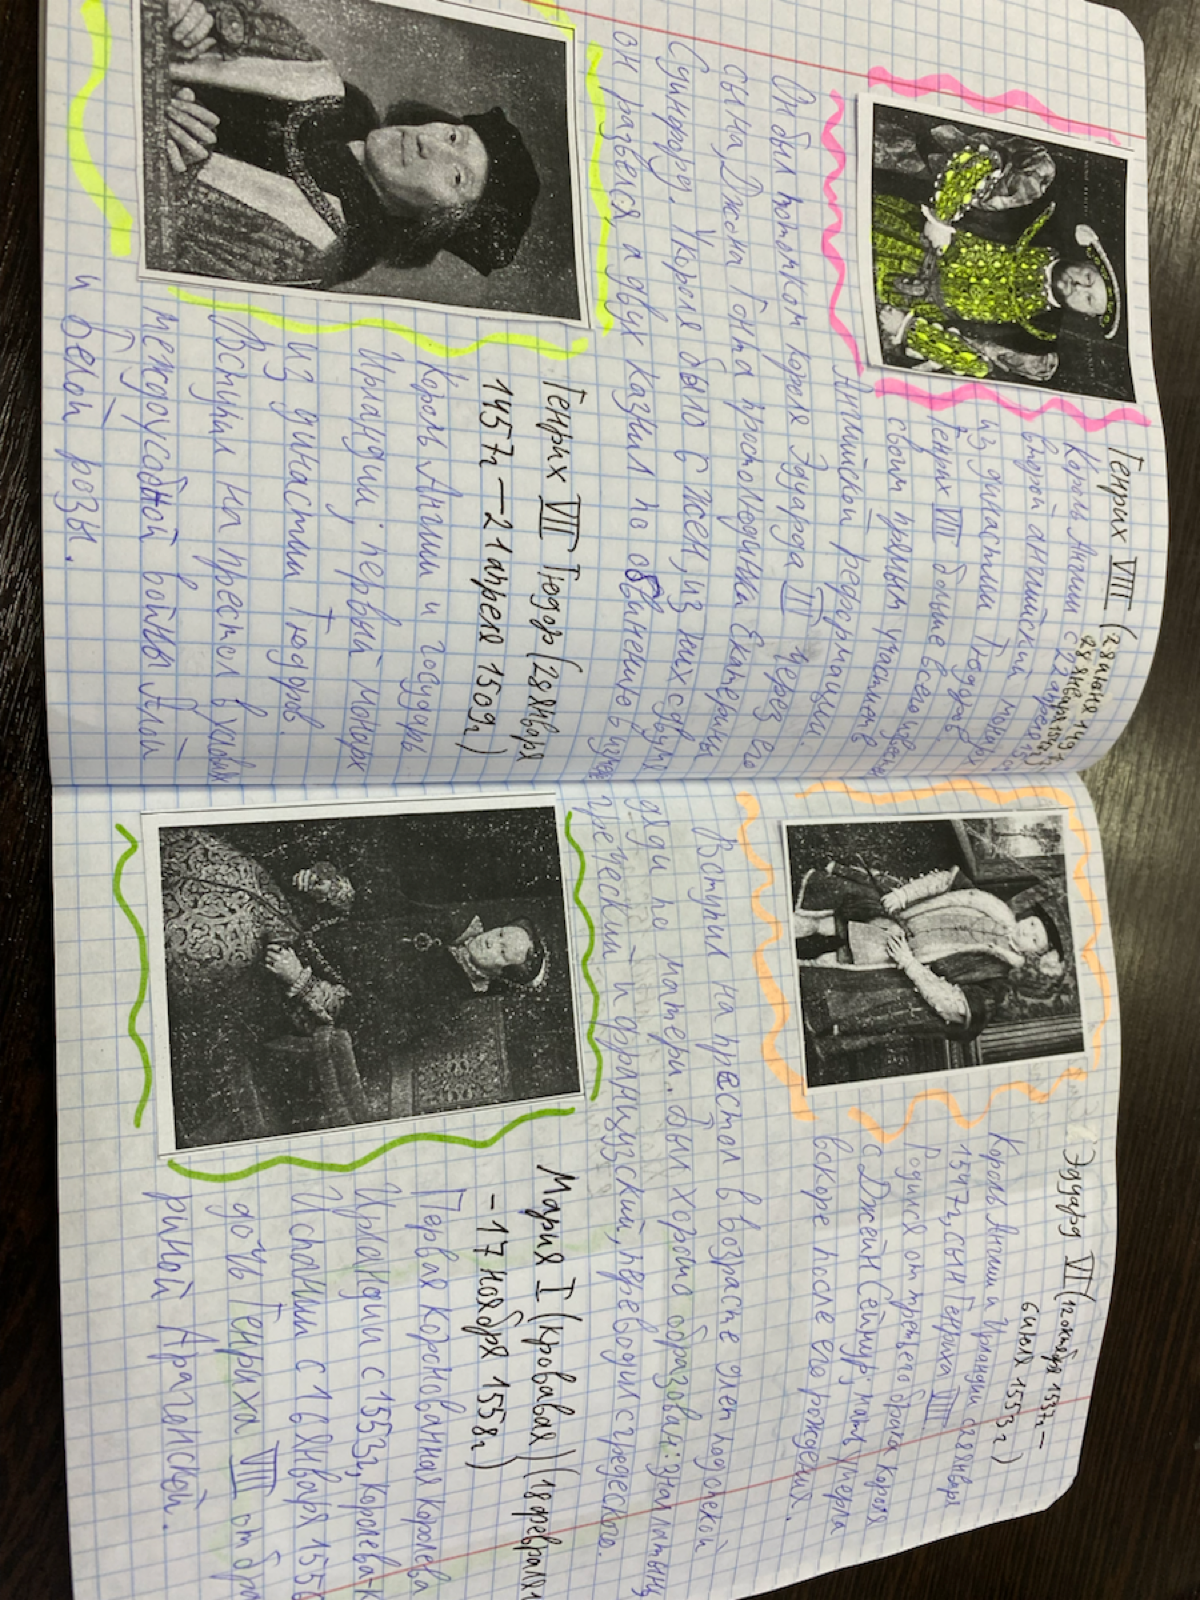 Генрих VIII (28 июня 1491
28 января 1547)
Король Англии с 22 апреля 1509
второй английский монарх
из династии Тюдоров
Генрих VIII больше всего известен
своим прямым участием в
Английской реформации.
Он был потомком короля Эдуарда III через его
сына, Джона Гонта простолюдинка Екатерины
Суинфорд. У короля было 6 жен, из них с двумя
он развелся, а двух казнил по обвинению в измене
Генрих VII Тюдор (28 января
1457г — 21 апреля 1509г)
Король Англии и государь
Ирландии; первый монарх
из династии Тюдоров.
Вступил на престол в условиях
междоусобной войны Алой
и белой розы.
Эдуард VI (12 октября 1537г —
6 июля 1553г)
Король Англии и Ирландии с 28 января
1547г, сын Генриха VIII
Родился от третьего брака короля
с Джейн Сеймур; мать умерла
вскоре после его рождения.
Вступил на престол в возрасте 9 лет под опекой
дяди по матери. Был хорошо образован: знал латынь,
греческий и французский, переводил с греческого.
Мария I (кровавая) (18 февраля
- 17 ноября 1558г)
Первая коронованная королева
Ирландии с 1553, королева-к
Испании с 16 января 1556
дочь Генриха VIII от бра
риной Арагонской.